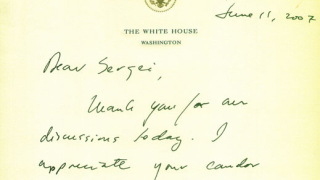 June 11, 2007
THE WHITE HOUSE
WASHINGTON
Dear Sergei,
Thank you for our
discussions today. I
appreciate your candor